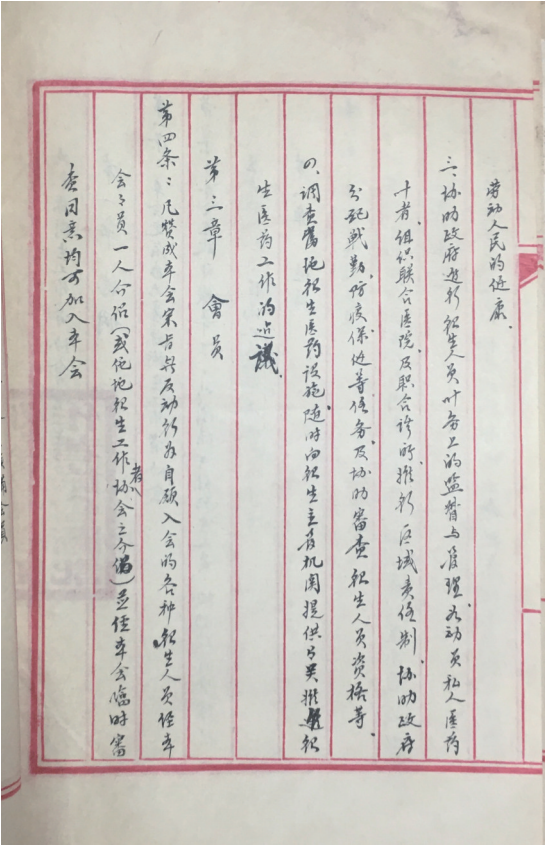 劳动人民的健康.
三、协助政府进行卫生人员业务上的监督与管理.及动员私人医药
士者、组织联合医院、及联合诊所、推行区域责任制、协助政府
分配战勤、防疫保健等任务及协助审查卫生人员资格等.
四、调查当地卫生医药设施.随时向卫生主管机关提供与关推進卫
生医药工作的建議.
第三章 會员
第四条：凡赞成本会宗旨無反动行为自願入会的各种卫生人员经本
会会员一人介绍(或他地卫生工作者协会之介绍)並经本会临时審
查同意均可加入本会